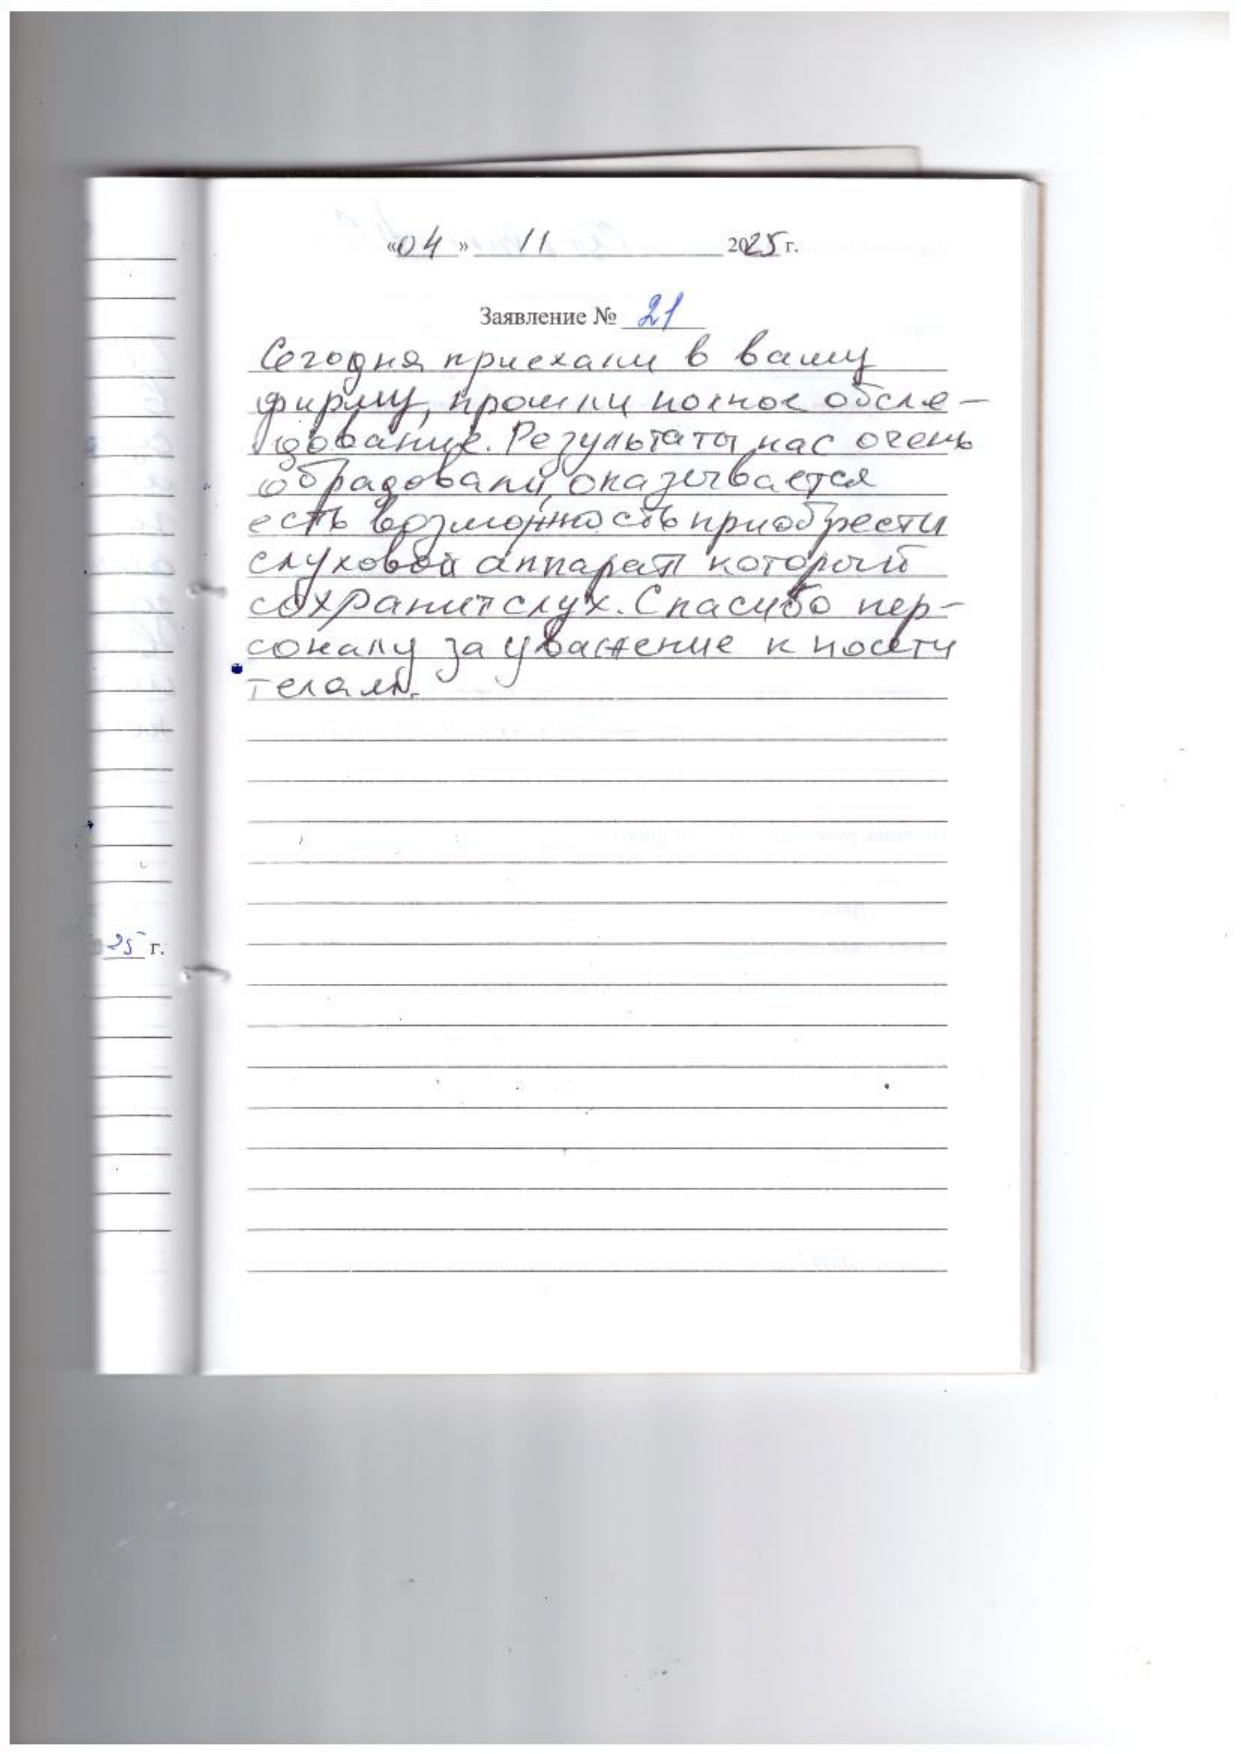 «04» 11 2025 г.
Заявление № 21
Сегодня приехали в вашу
фирму, прошли полное обсле-
дование. Результаты нас очень
обрадовали, оказывается
есть возможность приобрести
слуховой аппарат который
сохранит слух. Спасибо пер-
соналу за уважение к посети
телям.
25 г.